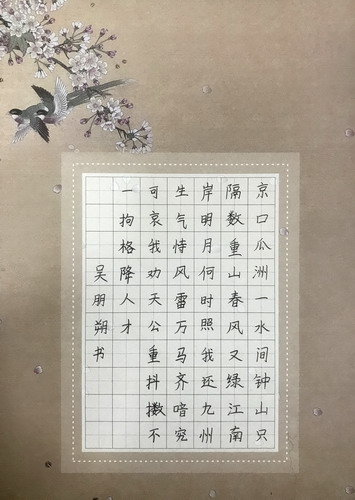 京口瓜洲一水间钟山只
隔数重山春风又绿江南
岸明月何时照我还九州
生气恃风雷万马齐喑究
可哀我劝天公重抖擞不
一拘格降人才
吴朋朔书